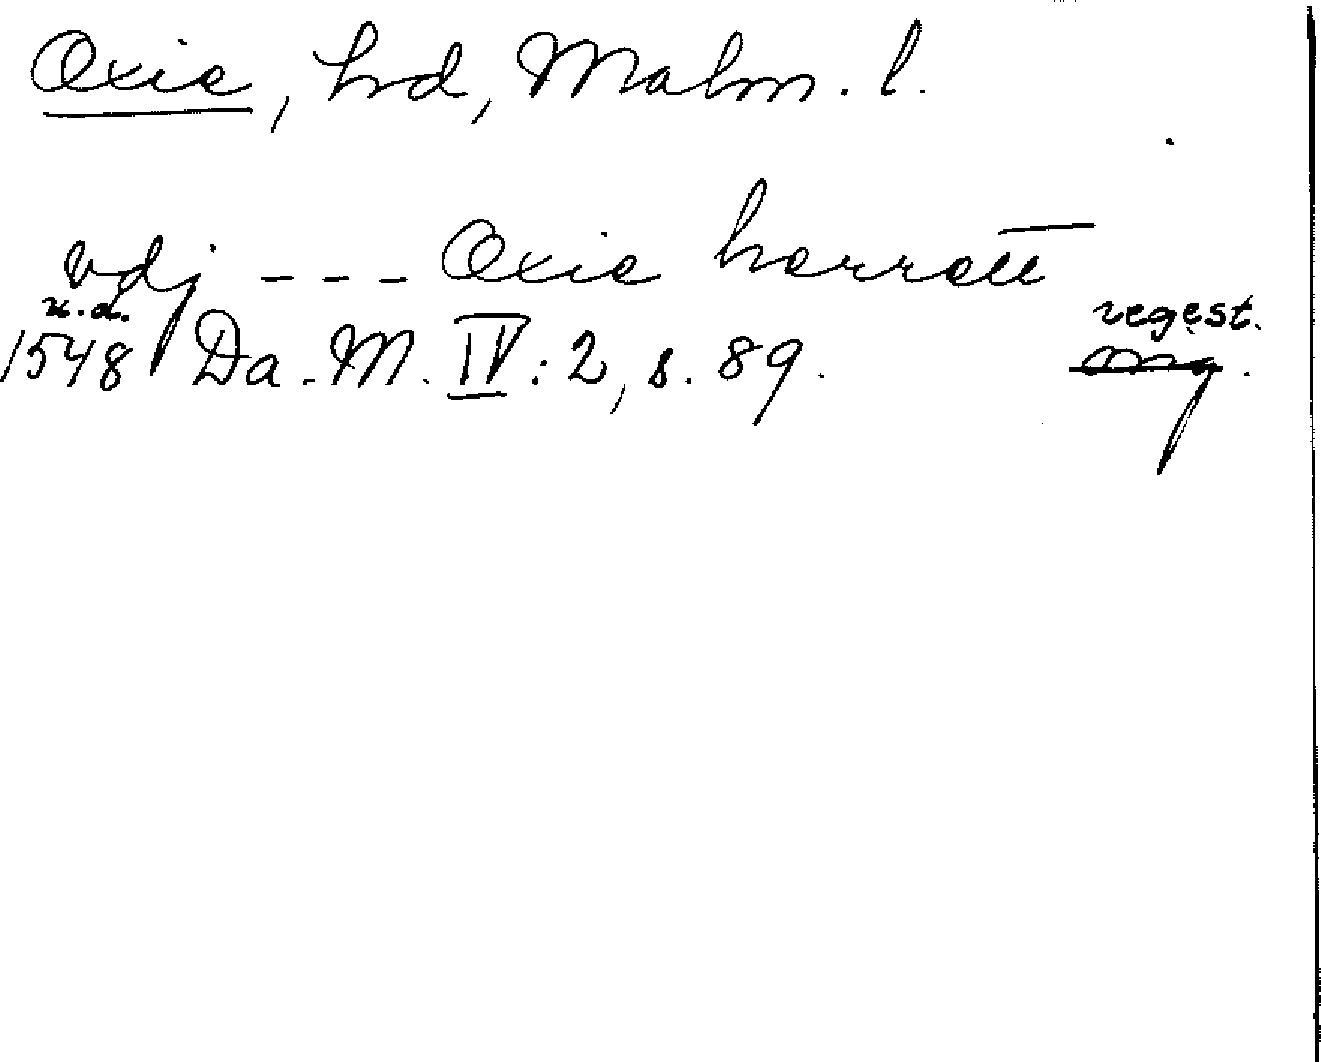 Oxie, hrd, Malm. l.
vdj --- Oxie herrett
u.d. regest.
1548 Da. M. IV: 2, s. 89.